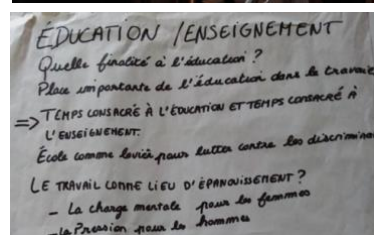 ÉDUCATION / ENSEIGNEMENT
Quelle finalité à l'éducation ?
Place importante de l'éducation dans le travail
=> TEMPS CONSACRÉ À L'ÉDUCATION ET TEMPS CONSACRÉ À
L'ENSEIGNEMENT.
École comme levier pour lutter contre les discrimina
LE TRAVAIL COMME LIEU D'ÉPANOUISSEMENT ?
- La charge mentale pour les femmes
- La Pression pour les hommes